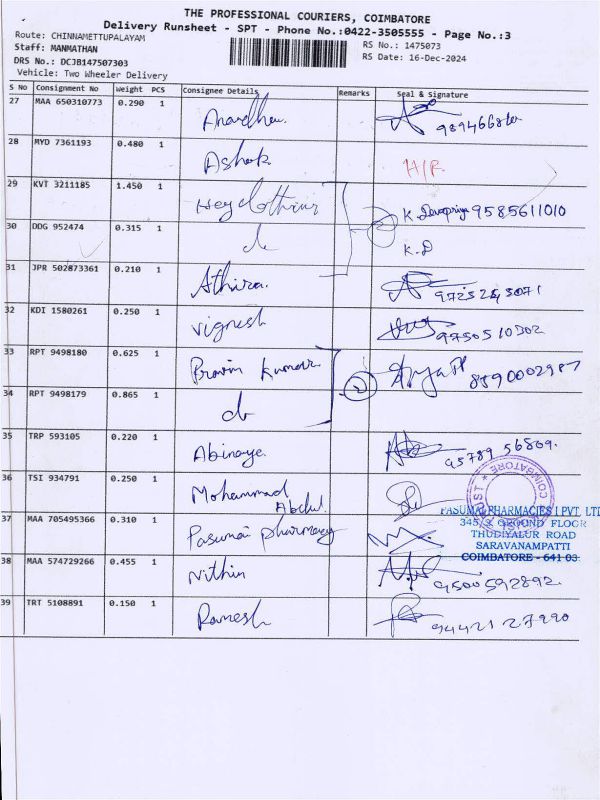 THE PROFESSIONAL COURIERS, COIMBATORE
Delivery Runsheet - SPT - Phone No.:0422-3505555 - Page No.:3
Route: CHINNAMETTUPALAYAM
Staff: MANMATHAN
DRS No.: DCJB147507303
Vehicle: Two Wheeler Delivery
RS No.: 1475073
RS Date: 16-Dec-2024
S No Consignment No Weight PCS Consignee Details Remarks Seal & Signature
27 MAA 650310773 0.290 1
28 MYD 7361193 0.480 1 Ashok H/R
29 KVT 3211185 1.450 1 K. Devapriya 9585611010
30 DDG 952474 0.315 1 do K.D
31 JPR 502873361 0.210 1 Athira.
32 KDI 1580261 0.250 1 Vignesh 9750510302
33 RPT 9498180 0.625 1 Bravin Kumar 2 8890002987
34 RPT 9498179 0.865 1 do
35 TRP 593105 0.220 1 Abinaya 95789 56809.
36 TSI 934791 0.250 1 Mohammad Abdul
37 MAA 705495366 0.310 1 Pasumai pharmacy
PASUMAI PHARMACIES I PVT. LTD
345/3 GROUND FLOOR
THUDIYALUR ROAD
SARAVANAMPATTI
COIMBATORE - 641 03
COIMBATORE
38 MAA 574729266 0.455 1 Nithin 9500592892.
39 TRT 5108891 0.150 1 Ramesh 94421 27990